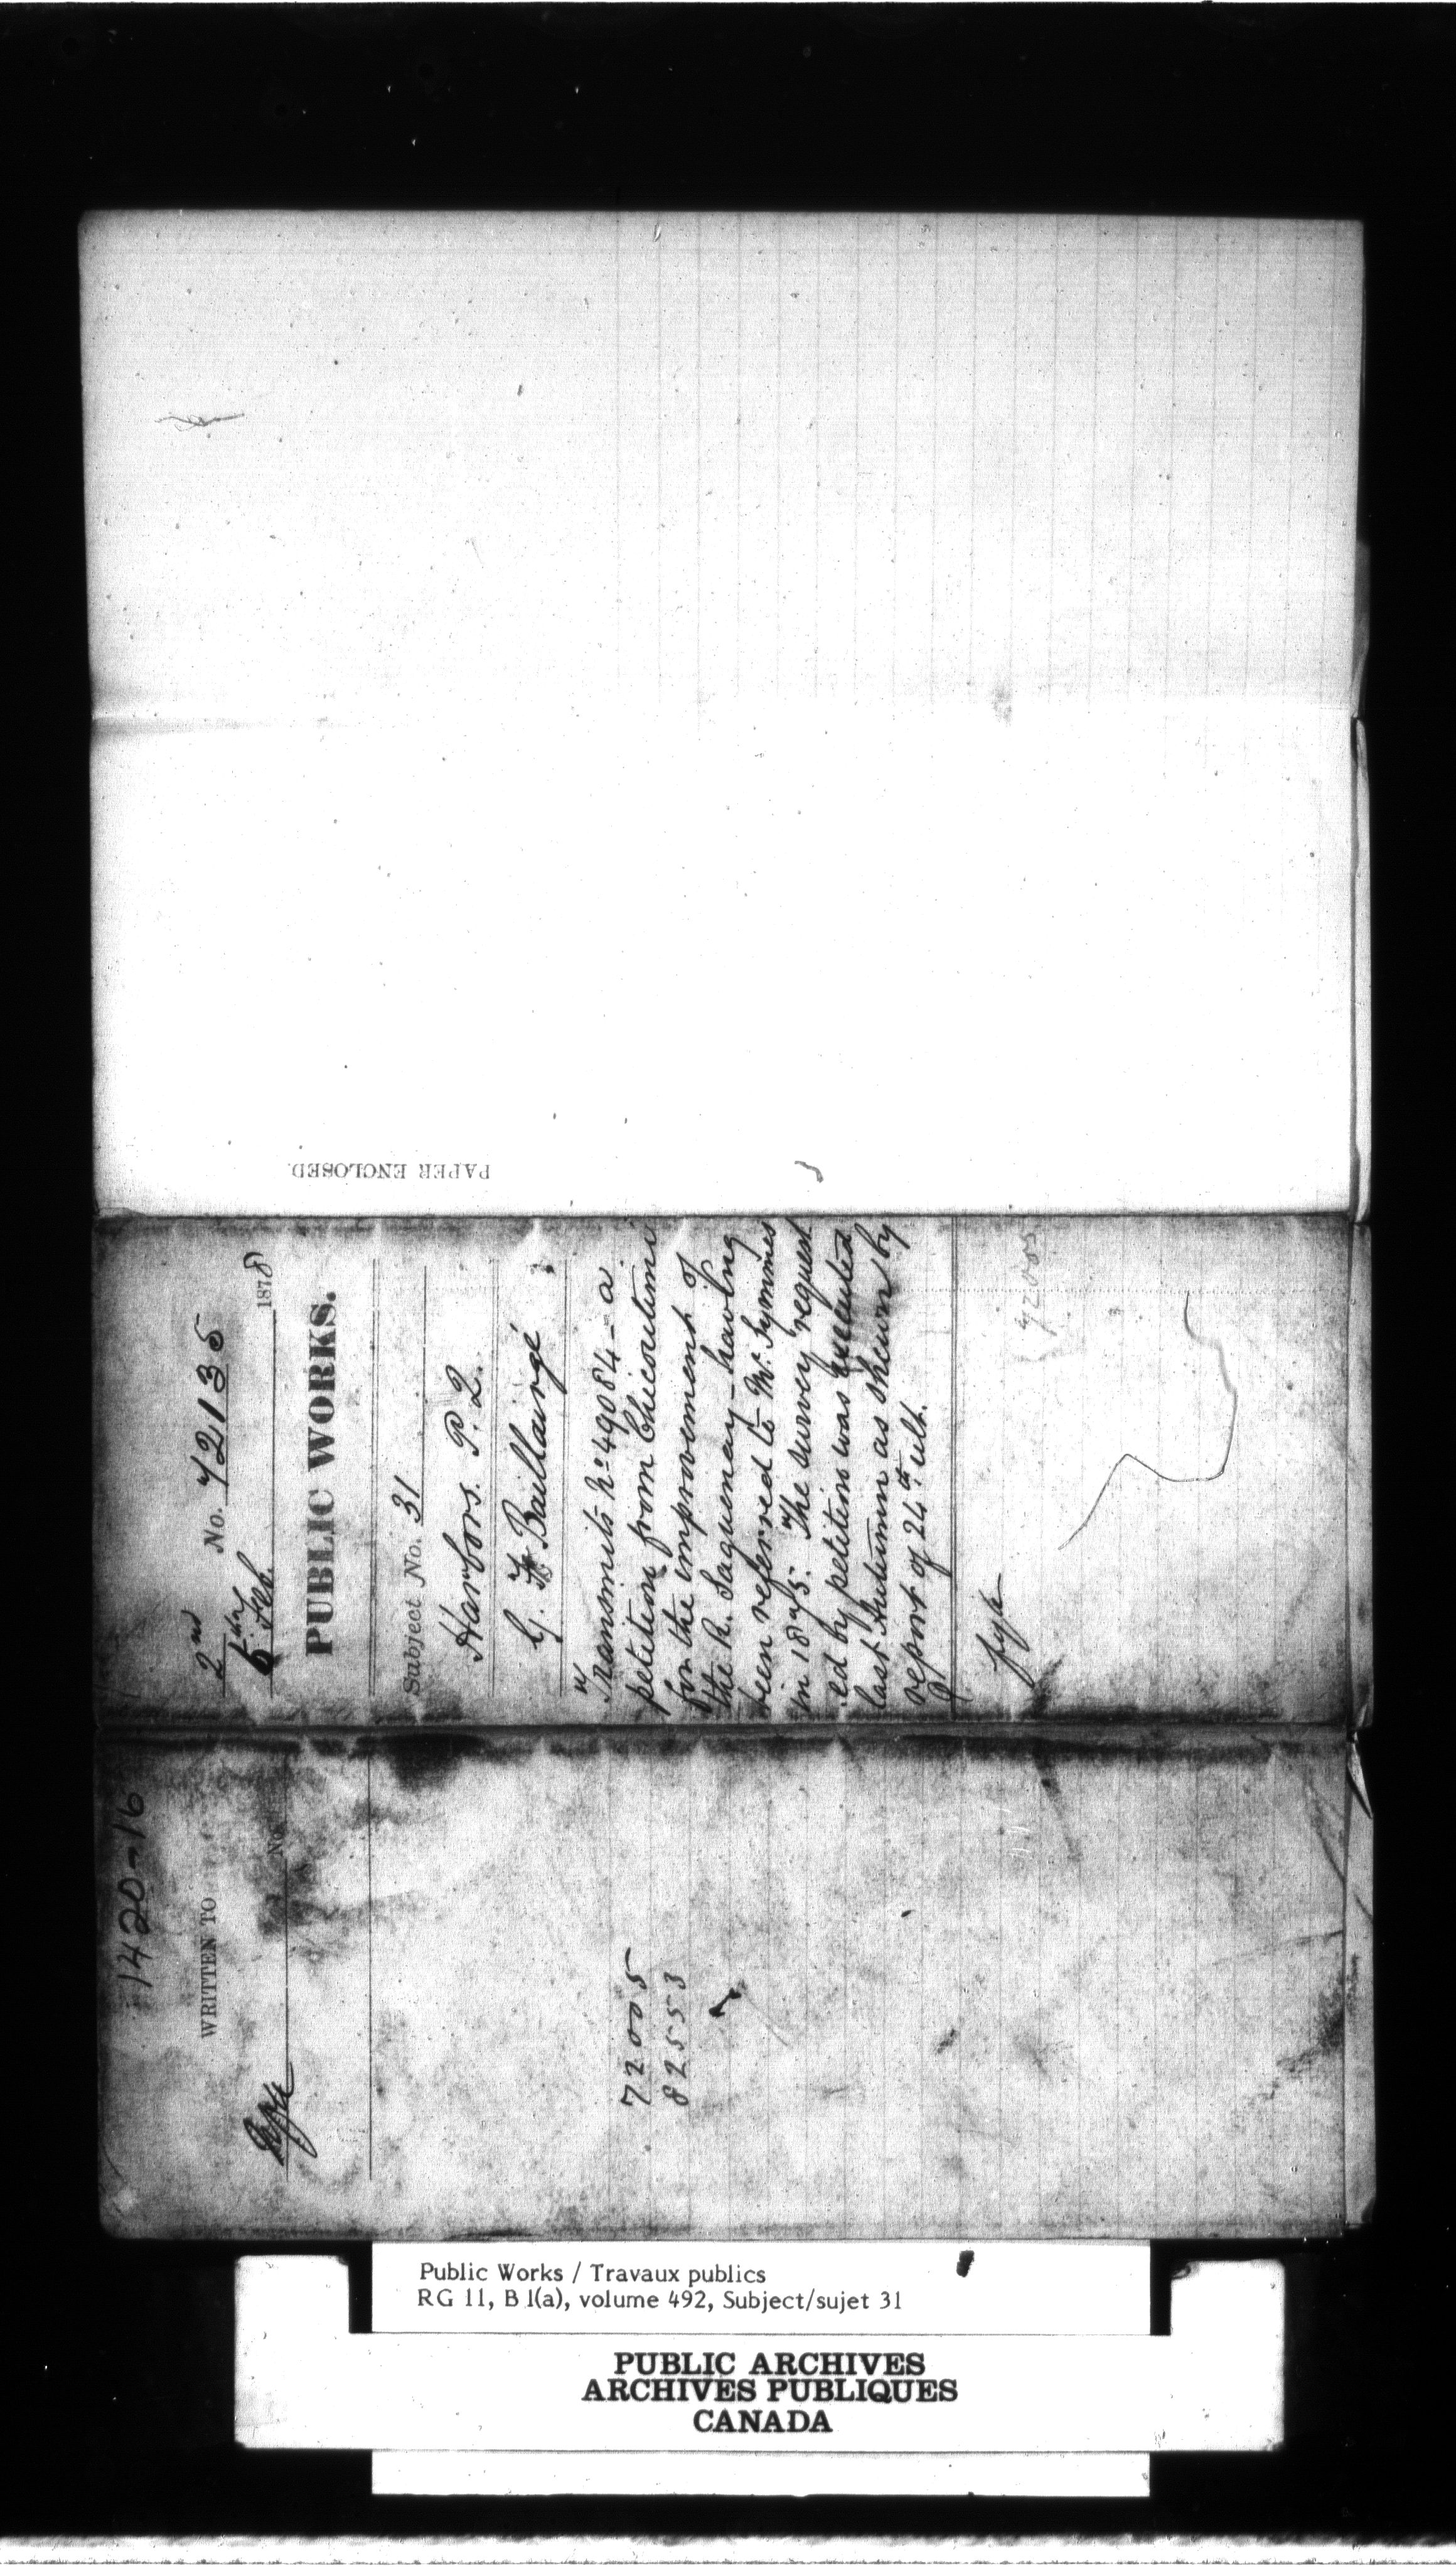 PAPER ENCLOSED.
2nd
6th Feb. No. 72135 1878
PUBLIC WORKS.
Subject No. 31
Harbors. P. Q.
G. F. Baillairgé
Transmits No. 49084 - a
petition from Chicoutimi
for the improvement of
the R. Saguenay - having
been referred to Mr. Symmes
in 1875. The survey request
ed by petition was executed
last Autumn as shewn by
report of 24th ult.
fyle
72005
1420-16
WRITTEN TO
No.
72005
82553
Public Works / Travaux publics
RG 11, B 1(a), volume 492, Subject/sujet 31
PUBLIC ARCHIVES
ARCHIVES PUBLIQUES
CANADA